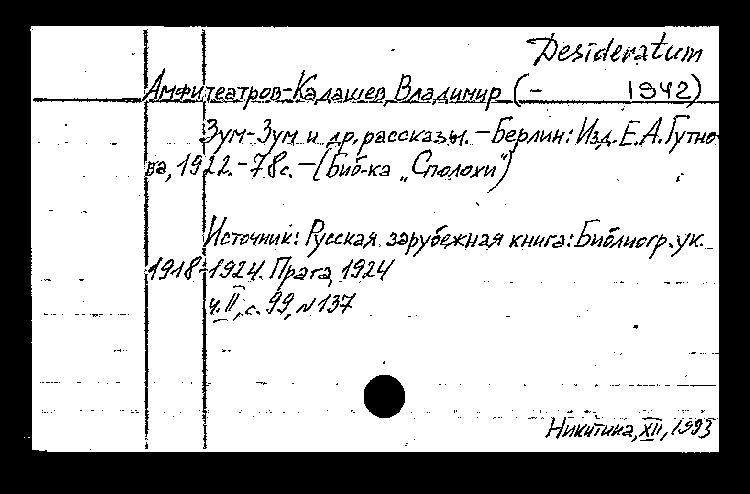 Desideratum
Амфитеатров-Кадашев, Владимир (- 1942)
Зум-Зум и др. рассказы. – Берлин: Изд. Е.А. Гутно-
ва, 1922. – 78с. – (Биб-ка „Сполохи")
Источник: Русская зарубежная книга: Библиогр. ук.
1918-1924. Прага, 1924
ч. II, с. 99, № 137
Никитина, XII, 1993